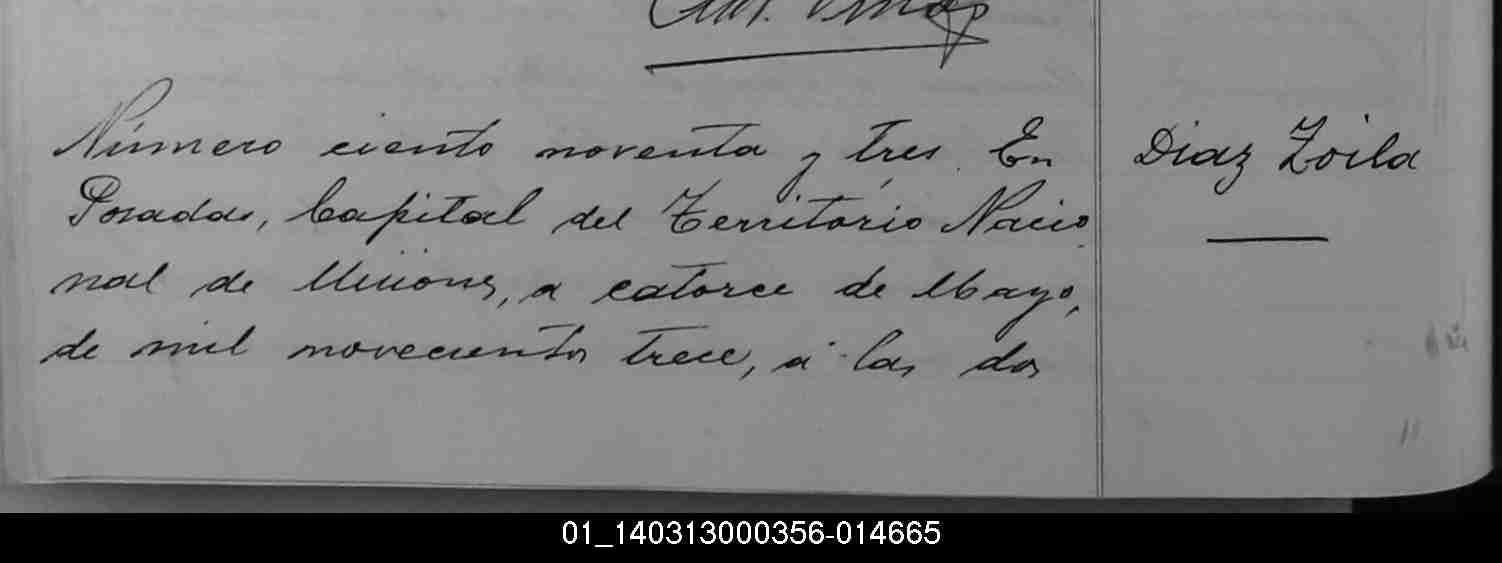 Número ciento noventa y tres. En
Posadas, Capital del Territorio Nacio
nal de Misiones, a catorce de Mayo,
de mil novecientos trece, á las dos
Diaz Zoila
01_140313000356-014665